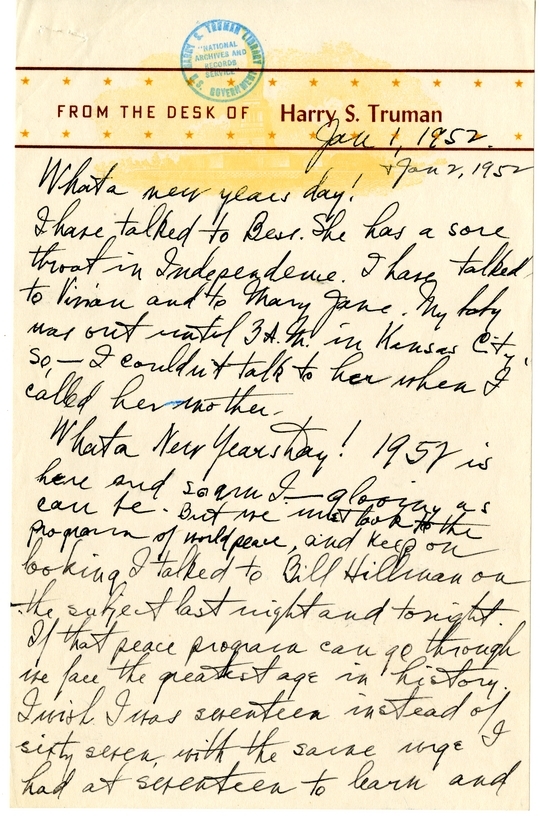 HARRY S. TRUMAN LIBRARY
"NATIONAL
ARCHIVES AND
RECORDS
SERVICE"
U.S. GOVERNMENT
FROM THE DESK OF Harry S. Truman
Jan 1, 1952.
+Jan 2, 1952
What a new years day!
I have talked to Bess. She has a sore
throat in Independence. I have talked
to Vivian and to Mary Jane. My baby
was out until 3 A.M. in Kansas City,
So,— I couldn't talk to her when I
called her mother.
What a New Years day! 1952 is
here and so am I — gloomy as
can be. But we must look to the
program of world peace, and keep on
looking I talked to Bill Hillman on
the subject last night and tonight.
If that peace program can go through
we face the greatest age in history.
I wish I was seventeen instead of
sixty seven, with the same urge I
had at seventeen to learn and